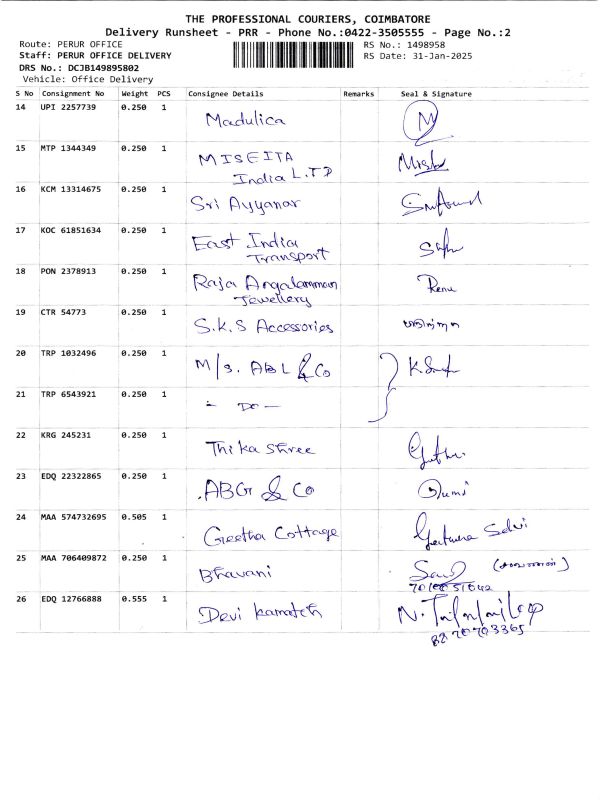 THE PROFESSIONAL COURIERS, COIMBATORE
Delivery Runsheet - PRR - Phone No.:0422-3505555 - Page No.:2
Route: PERUR OFFICE RS No.: 1498958
Staff: PERUR OFFICE DELIVERY RS Date: 31-Jan-2025
DRS No.: DCJB149895802
Vehicle: Office Delivery
S No Consignment No Weight PCS Consignee Details Remarks Seal & Signature
14 UPI 2257739 0.250 1 Madulica M
15 MTP 1344349 0.250 1 MISEITA
India L.TD
16 KCM 13314675 0.250 1 Sri Ayyanar
17 KOC 61851634 0.250 1 East India
Transport
18 PON 2378913 0.250 1 Raja Angalamman Renu
Jewellery
19 CTR 54773 0.250 1 S.K.S Accessories
20 TRP 1032496 0.250 1 M/s. ABL & Co
21 TRP 6543921 0.250 1 - Do -
22 KRG 245231 0.250 1 Thika Shree
23 EDQ 22322865 0.250 1 ABG & Co
24 MAA 574732695 0.505 1 Geetha Cottage Selvi
25 MAA 706409872 0.250 1 Bhavani
26 EDQ 12766888 0.555 1 Devi Kamatch